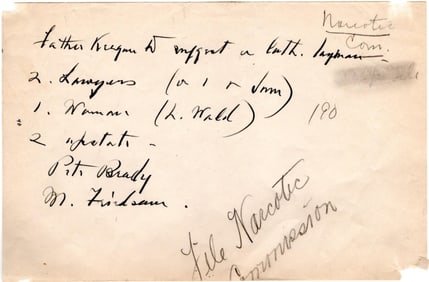 Narcotic
Com.
Father Keegan to suggest a Cath. layman
2. Lawyers (or 1 or
1. Woman (L. Wald) 190
2 upstate -
Pete Brady
M.
File Narcotic
Commission